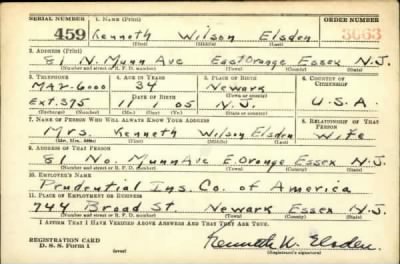 SERIAL NUMBER 1. NAME (Print) ORDER NUMBER
459 Kenneth Wilson Elsden 3063
(First) (Middle) (Last)
2. ADDRESS (Print)
81 N. Munn Ave East Orange Essex N.J.
(Number and street or R. F. D. number) (Town) (County) (State)
3. TELEPHONE 4. AGE IN YEARS 5. PLACE OF BIRTH 6. COUNTRY OF CITIZENSHIP
MAr-6000 34 Newark
DATE OF BIRTH
Ext. 375 11 1 05 N.J. U.S.A.
(Exchange) (Number) (Mo.) (Day) (Yr.) (State or country)
7. NAME OF PERSON WHO WILL ALWAYS KNOW YOUR ADDRESS 8. RELATIONSHIP OF THAT PERSON
Mrs. Kenneth Wilson Elsden Wife
(Mr., Mrs., Miss) (First) (Middle) (Last)
9. ADDRESS OF THAT PERSON
81 No. Munn Ave. E. Orange Essex N.J.
(Number and street or R. F. D. number) (Town) (County) (State)
10. EMPLOYER'S NAME
Prudential Ins. Co. of America
11. PLACE OF EMPLOYMENT OR BUSINESS
744 Broad St. Newark Essex N.J.
(Number and street or R. F. D. number) (Town) (County) (State)
I AFFIRM THAT I HAVE VERIFIED ABOVE ANSWERS AND THAT THEY ARE TRUE.
REGISTRATION CARD
D. S. S. Form 1 (over) Kenneth W. Elsden.
(Registrant's signature)